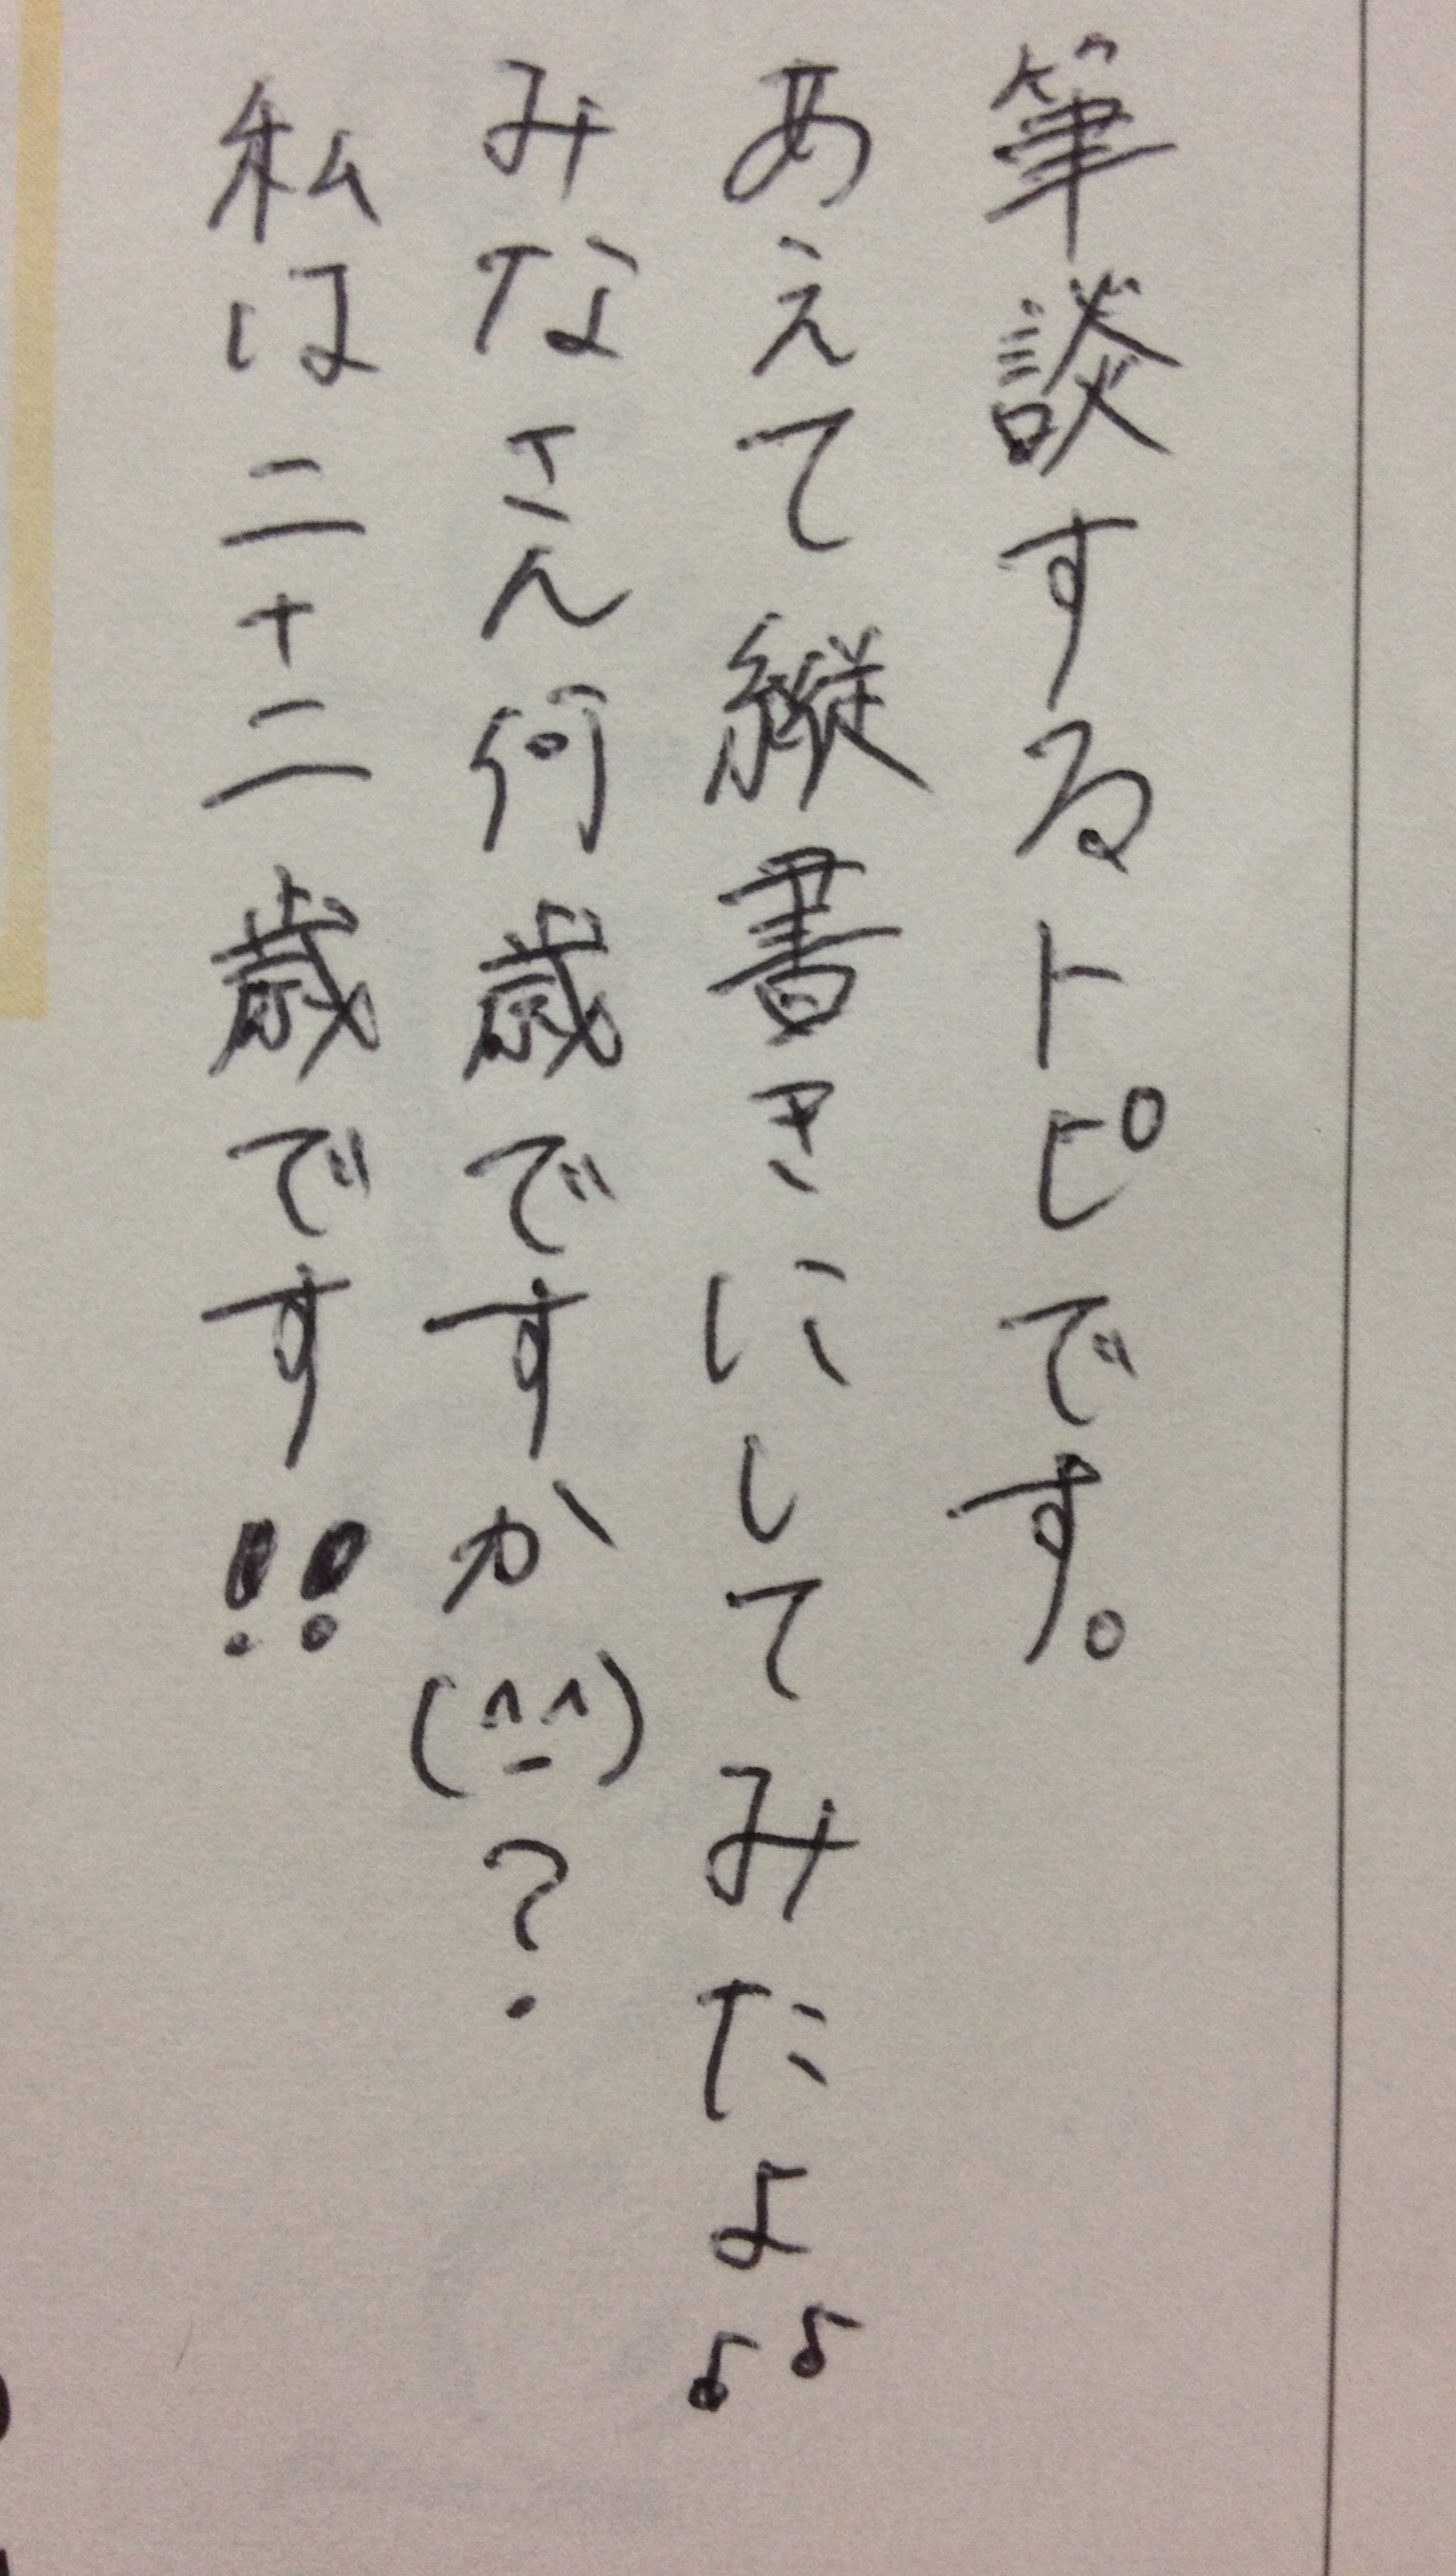 筆談するトピです。
あえて縦書きにしてみたよ♪♪
みなさん何歳ですか(^-^)?
私は二十二歳です!!